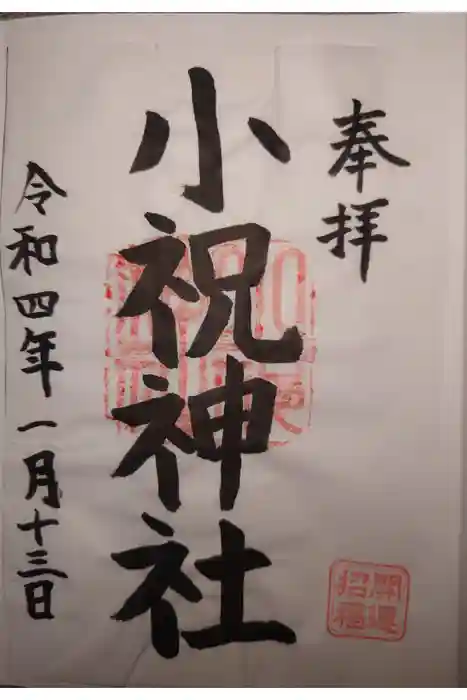 奉拝
小祝神社
令和四年一月十三日
開運
招福